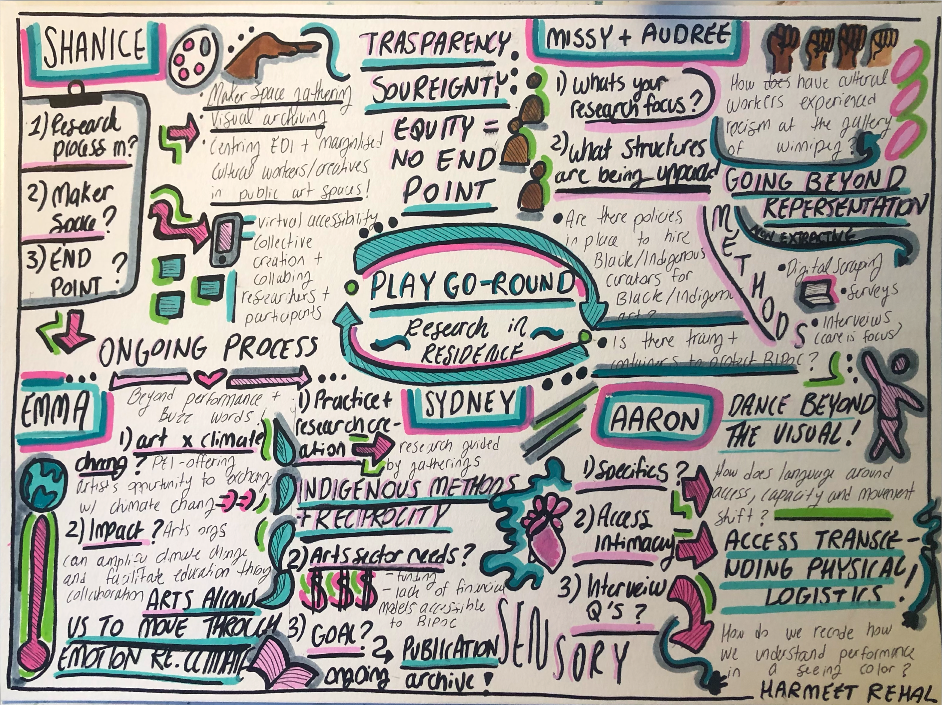 SHANICE
1) Research
process in?
2) Maker
Space?
3) END
POINT?
Maker Space gathering
Visual archiving
Centring EDI + marginalized
cultural workers/creatives
in public art spaces!
virtual accessibility
collective
creation +
collabing
researchers +
participants
ONGOING PROCESS
TRASPARENCY
SOUREIGNTY
EQUITY =
NO END
POINT
MISSY + AUDREE
1) Whats your
research focus?
2) What structures
are being upheld
Are there policies
in place to hire
Black/Indigenous
curators for
Black/Indigenous
art?
Is there traing +
to protect BIPOC?
How does have cultural
workers experienced
racism at the gallery
of winnipeg?
GOING BEYOND
REPERSENTATION
NON EXTRACTIVE
METHODS
Digital scraping
Surveys
Interviews
(care is focus)
PLAY GO-ROUND
Research in
RESIDENCE
EMMA
Beyond performance +
Buzz words!
1) art x climate
chang? PEI-offering
artist's opportunity to exchange
w/ climate chang
2) Impact? Arts orgs
can amplify climate change
and facilitate education through
collaboration
ARTS ALLOWS
US TO MOVE THROUGH
EMOTION RE. CLIMATE
SYDNEY
1) Practice +
research cre-
ation
research guided
by gatherings
INDIGENOUS METHODS
+ RECIPROCITY
2) Arts sector needs?
$$$
- funding
- lack of financial
models accessible
to BIPOC
3) GOAL?
ongoing
PUBLICATION
archive!
SENSORY
AARON
1) Specifics?
2) Access
Intimacy
3) Interview
Q'S?
DANCE BEYOND
THE VISUAL!
How does language around
access, capacity and movement
shift?
ACCESS TRANSCE-
NDING PHYSICAL
LOGISTICS!
How do we recode how
we understand performance
in a seeing color?
HARMEET REHAL